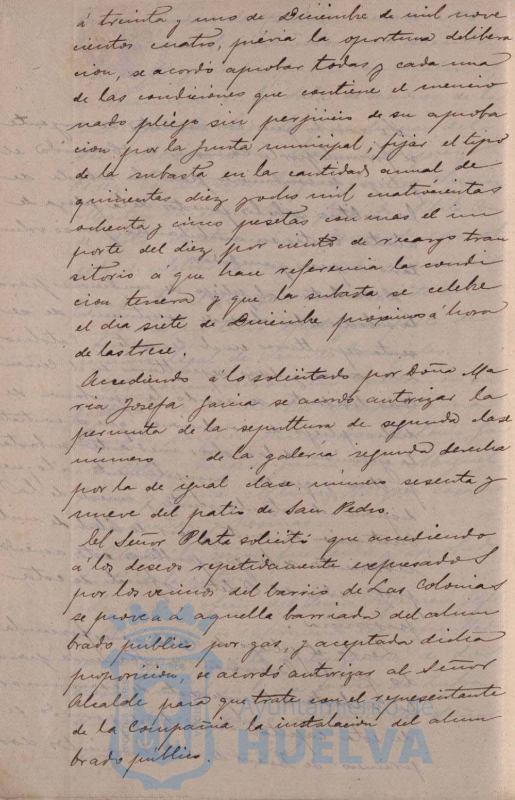 á treinta y uno de Diciembre de mil nove
cientos cuatro, prévia la oportuna delibera
cion, se acordó aprobar todas y cada una
de las condiciones que contiene el mencio
nado pliego sin perjuicio de su aproba
cion por la Junta municipal; fijar el tipo
de la subasta en la cantidad anual de
quinientas diez y ocho mil cuatrocientas
ochenta y cinco pesetas con mas el im
porte del diez por ciento de recargo tran
sitorio á que hace referencia la condi
cion tercera y que la subasta se celebre
el dia siete de Diciembre proximo á hora
de las trece.
Accediendo á lo solicitado por Doña Ma
ria Josefa Garcia se acordó autorizar la
permuta de la sepultura de segunda clase
número de la galeria segunda derecha
por la de igual clase número sesenta y
nueve del patio de San Pedro.
El Señor Plata solicitó que accediendo
á los deseos repetidamente expresados
por los vecinos del barrio de Las Colonias
se provea a aquella barriada del alum
brado publico por gas, y aceptada dicha
proposicion, se acordó autorizar al Señor
Alcalde para que trate con el representante
de la Compañia la instalacion del alum
brado público.
Ayuntamiento de
HUELVA